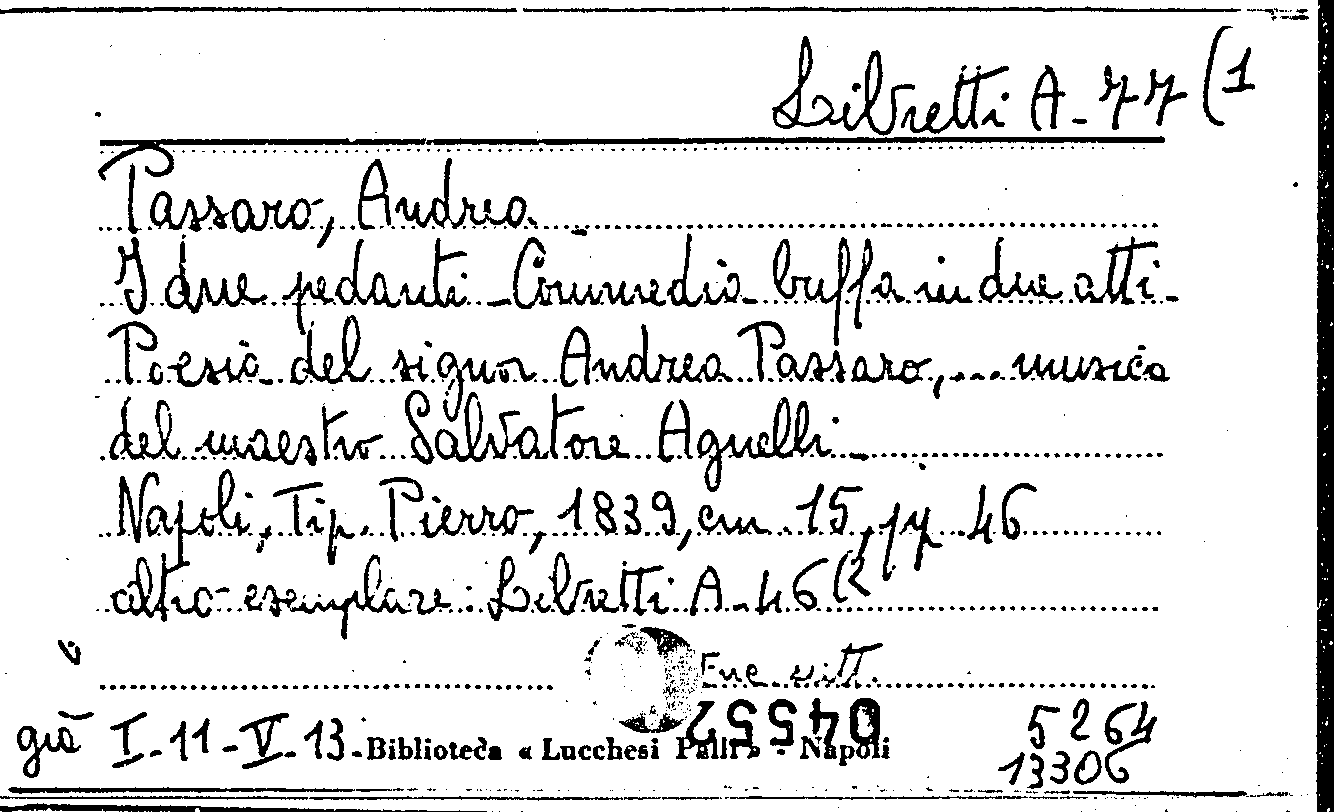 Libretti A-77(1
Passaro, Andrea
I due pedanti - Commedia buffa in due atti -
Poesia del signor Andrea Passaro,... musica
del maestro Salvatore Agnelli -
Napoli, Tip. Pierro, 1839, cm. 15, pp. 46
altro esemplare: Libretti A-46(2
già I-11-V-13.
Biblioteca « Lucchesi Palli » - Napoli
04552
5264
13306